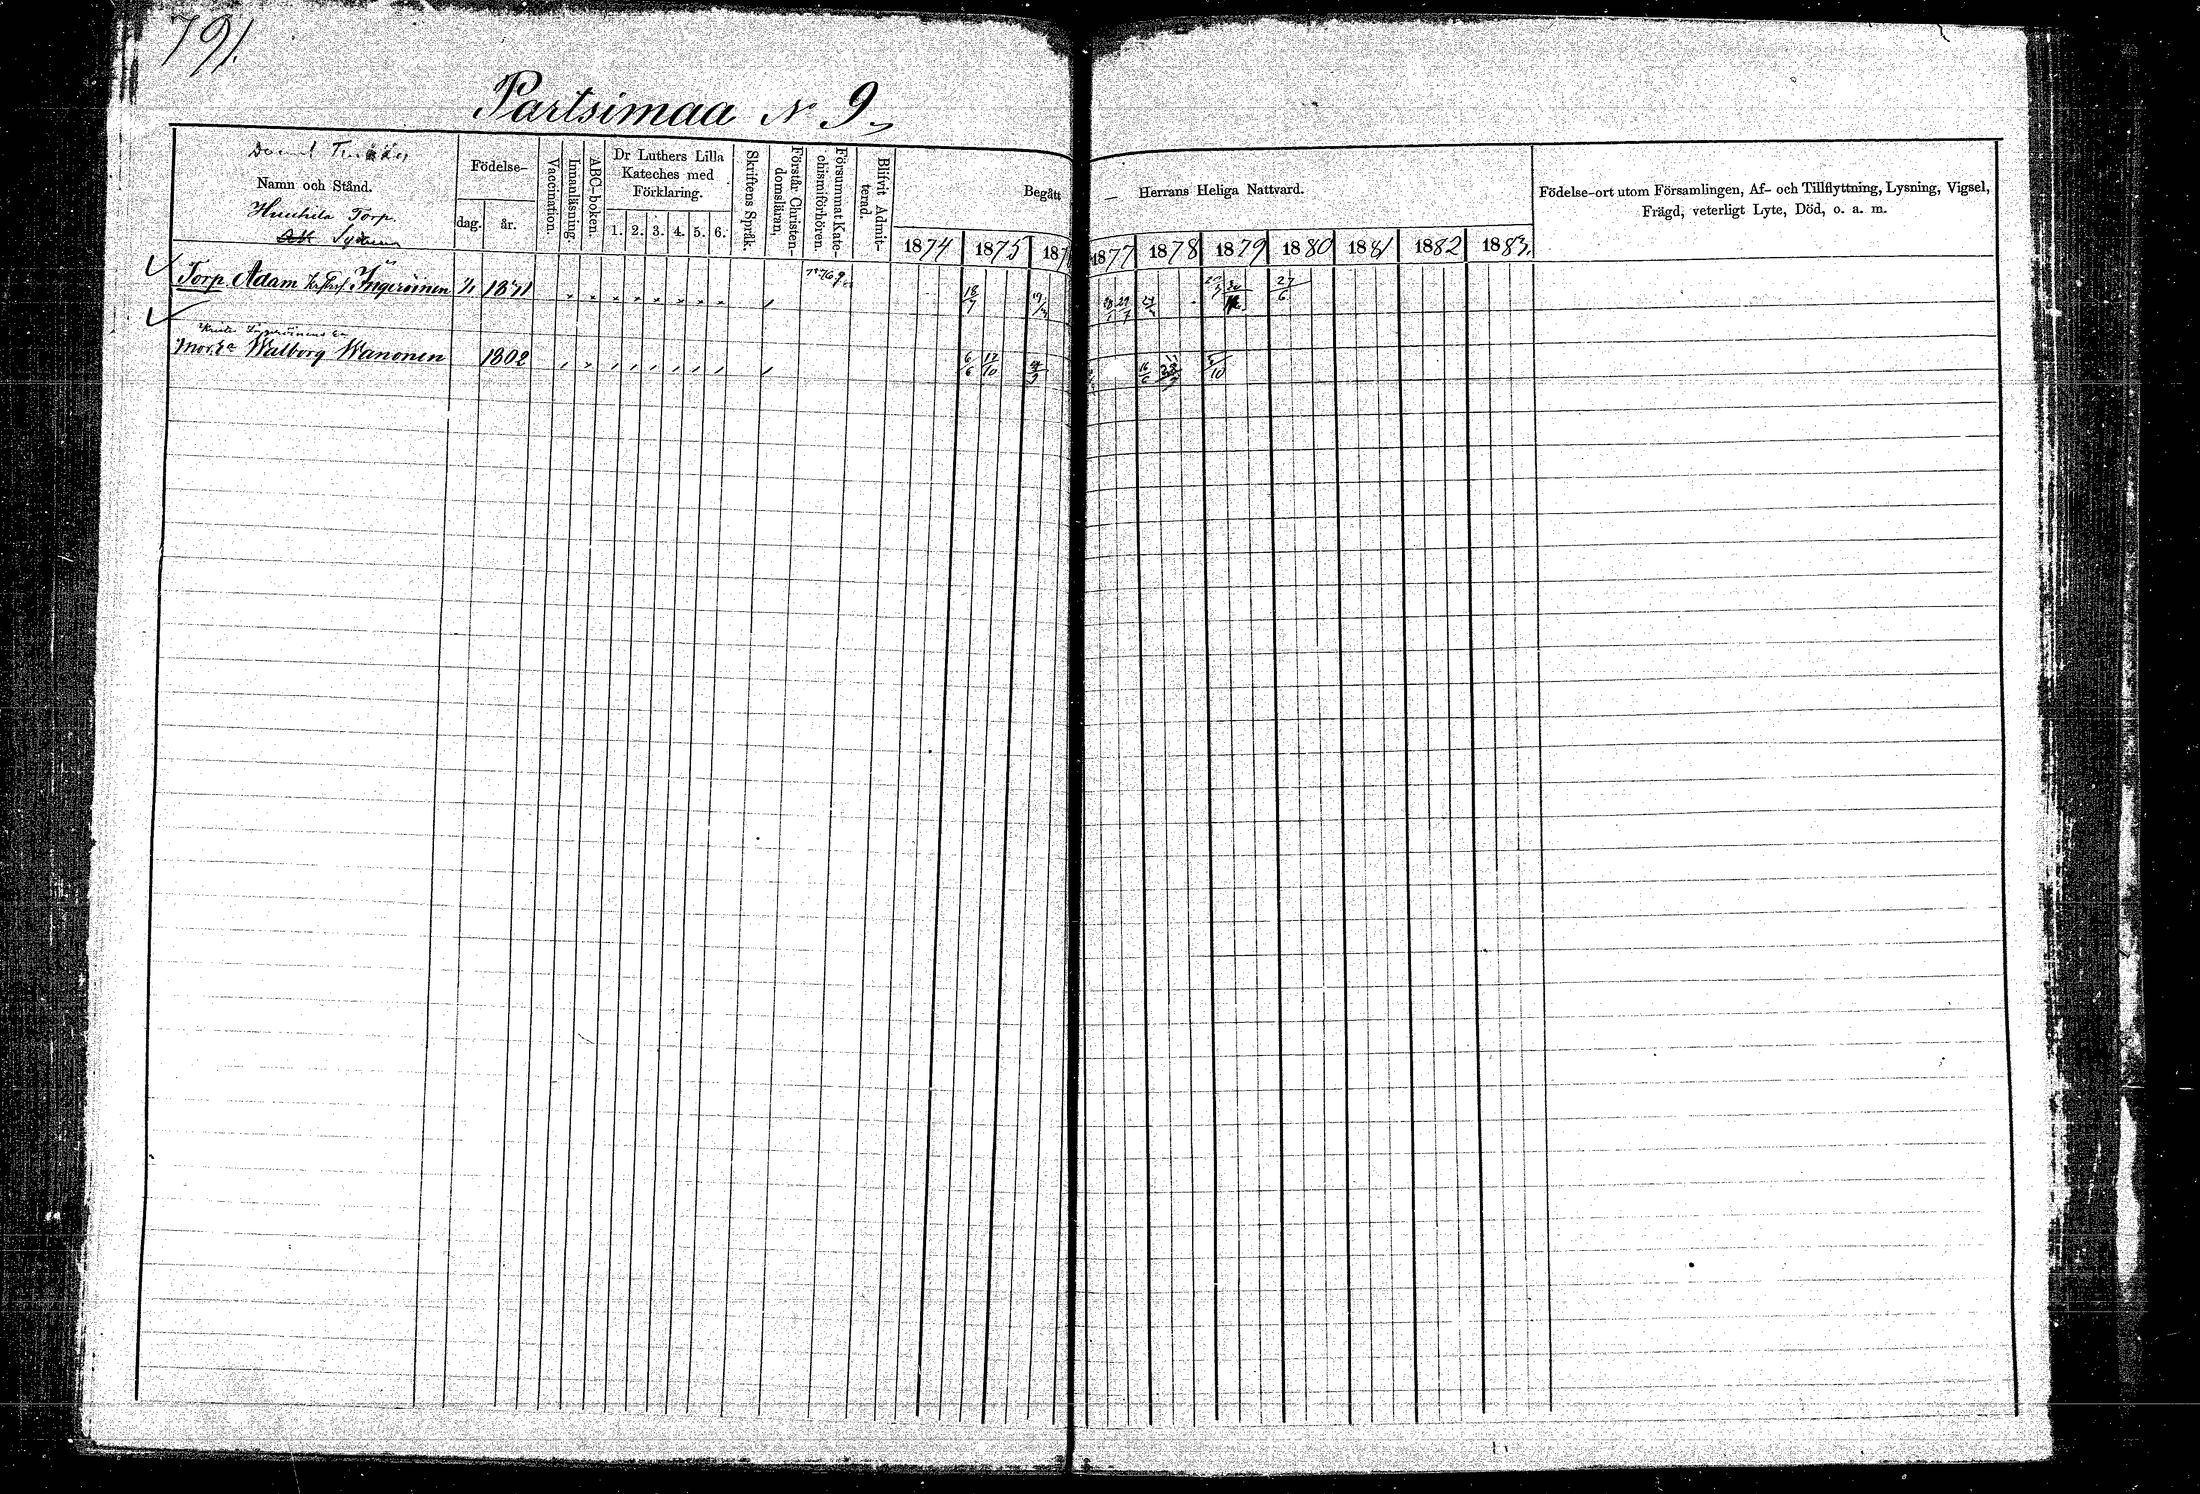 791.
Partsimaa No 9
Namn och Stånd.
Huuhila Torp.
Födelse-
dag.
år.
Vaccination.
Innanläsning.
ABC-boken.
Dr Luthers Lilla
Kateches med
Förklaring.
1. 2. 3. 4. 5. 6.
Skriftens Språk.
Förstår Christen-
domsläran,
Försummat Kate-
chismiförhören.
Blifvit Admit-
terad.
Begått
1874 1875 187
— Herrans Heliga Nattvard.
1877 1878 1879 1880 1881 1882 1883.
Födelse-ort utom Församlingen, Af- och Tillflyttning, Lysning, Vigsel,
Frägd, veterligt Lyte, Död, o. a. m.
Torp. Adam Ingeröinen
18/7 27/6
Walborg Wanonen 1802
6/6 17/10 5/10